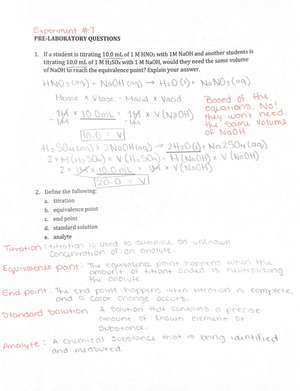 Experiment #7
PRE-LABORATORY QUESTIONS
1. If a student is titrating 10.0 mL of 1 M HNO3 with 1M NaOH and another students is
titrating 10.0 mL of 1 M H2SO4 with 1 M NaOH, would they need the same volume
of NaOH to reach the equivalence point? Explain your answer.
HNO3(aq) + NaOH(aq) → H2O(l) + NaNO3(aq)
Mbase x Vbase = Macid x Vacid
1M x 10.0mL = 1M x V(NaOH)
1M 1M
10.0 = V
Based of the
equations, No!
they won't need
the same volume
of NaOH.
H2SO4(aq) + 2NaOH(aq) → 2H2O(l) + Na2SO4(aq)
2 x M(H2SO4) x V(H2SO4) = M(NaOH) x V(NaOH)
2 x 1M x 10.0mL = 1M x V(NaOH)
20.0 = V
2. Define the following:
a. titration
b. equivalence point
c. end point
d. standard solution
e. analyte
Titration: titration is used to determine an unknown
concentration of an analyte.
Equivalence point: The equivalence point happens when the
amount of titrant added is neutralizing
the analyte.
End point: The end point happens when titration is complete
and a color change occurs.
Standard Solution: A solution that contains a precise
amount of known element or
substance.
Analyte: A chemical substance that is being identified
and measured.